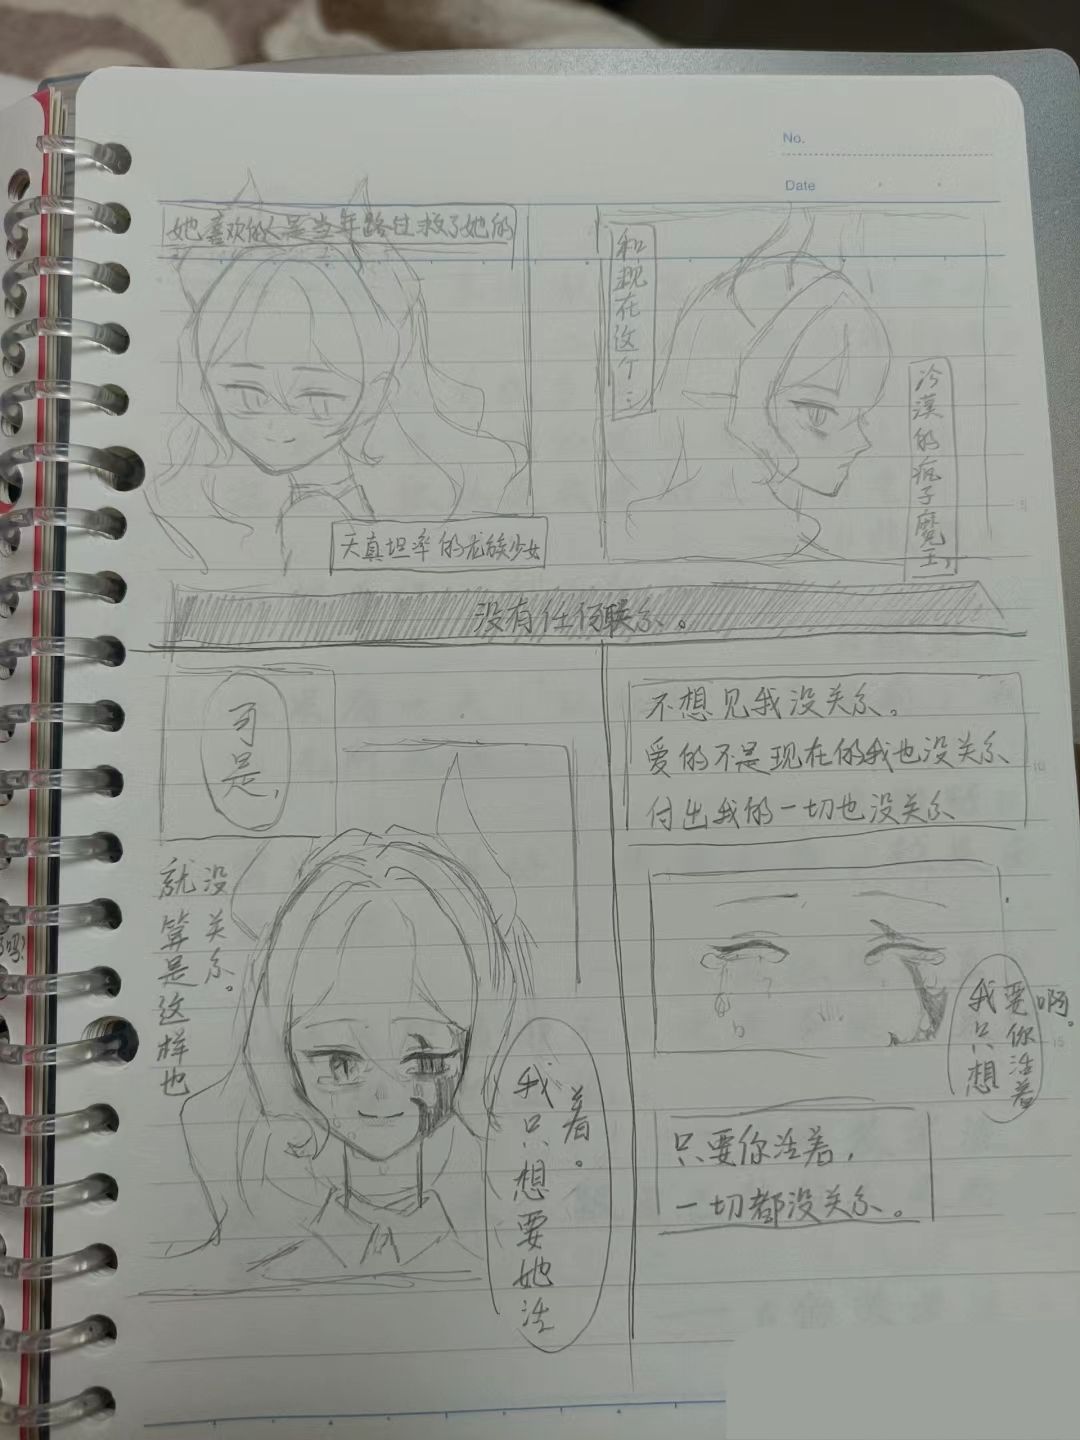 No.
Date
她喜欢的人是当年路过救了她的
天真坦率的龙族少女
和现在这个…
冷漠的疯子魔王,
没有任何联系。
可是,
就算是这样也
没关系。
我只想要她活
着。
不想见我没关系。
爱的不是现在的我也没关系
付出我的一切也没关系
我只想
要你活着
啊。
只要你活着,
一切都没关系。